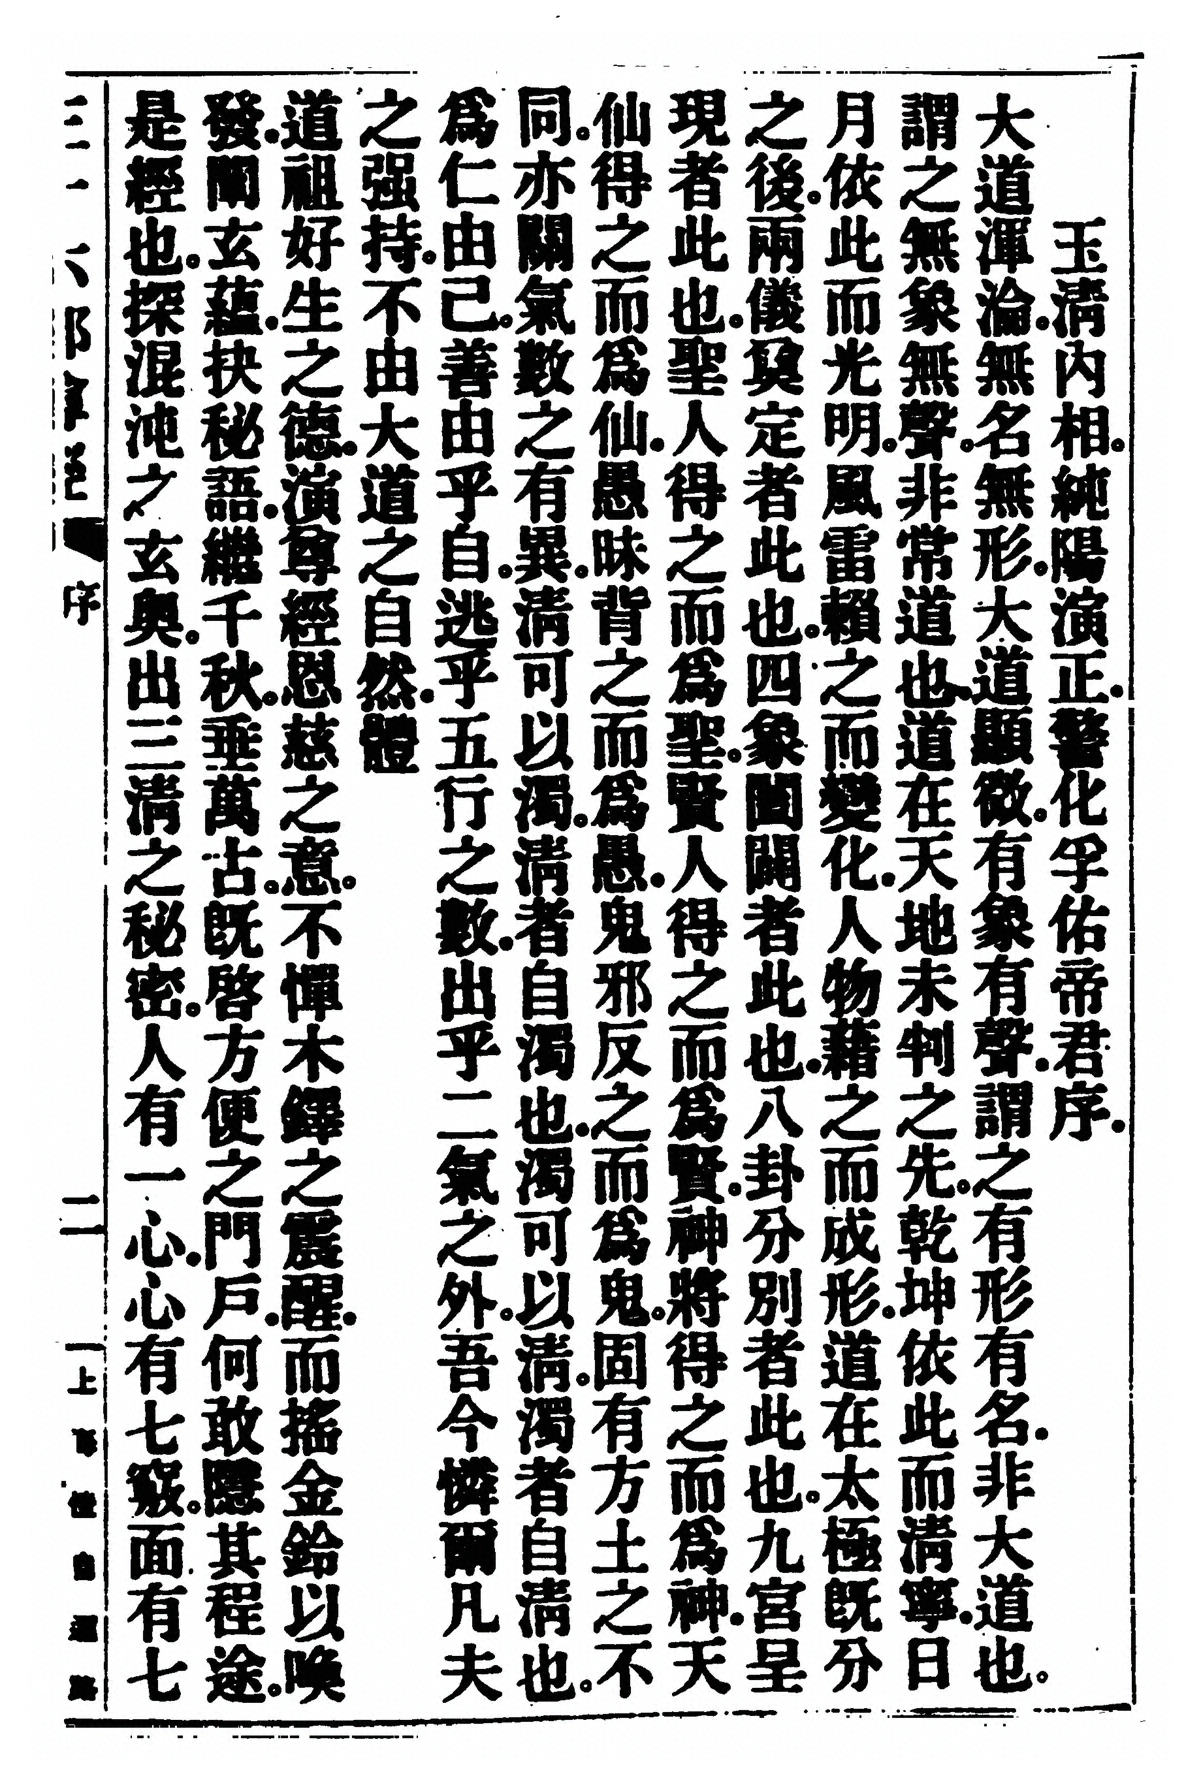 玉淸內相。純陽演正。警化孚佑帝君序。
大道渾淪。無名無形。大道顯微。有象有聲。謂之有形有名。非大道也。
謂之無象無聲。非常道也。道在天地未判之先。乾坤依此而淸寧。日
月依此而光明。風雷賴之而變化。人物藉之而成形。道在太極既分
之後。兩儀奠定者此也。四象闔闢者此也。八卦分別者此也。九宮呈
現者此也。聖人得之而爲聖。賢人得之而爲賢。神將得之而爲神。天
仙得之而爲仙。愚昧背之而爲愚。鬼邪反之而爲鬼。固有方土之不
同。亦關氣數之有異。淸可以濁。淸者自濁也。濁可以淸。濁者自淸也。
爲仁由己。善由乎自。逃乎五行之數。出乎二氣之外。吾今憐爾凡夫
之强持。不由大道之自然。體
道祖好生之德。演尊經恩慈之意。不憚木鐸之震醒。而搖金鈴以喚
發。闡玄蘊。抉秘語。繼千秋。垂萬古。既啓方便之門戶。何敢隱其程途。
是經也。探混沌之玄奧。出三淸之秘密。人有一心。心有七竅。面有七
序
二
上